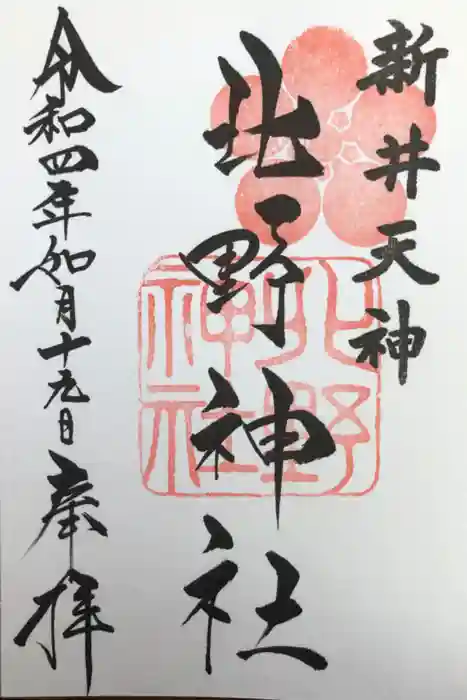 新井天神
北野神社
令和四年如月十九日
奉拝
北野
神社